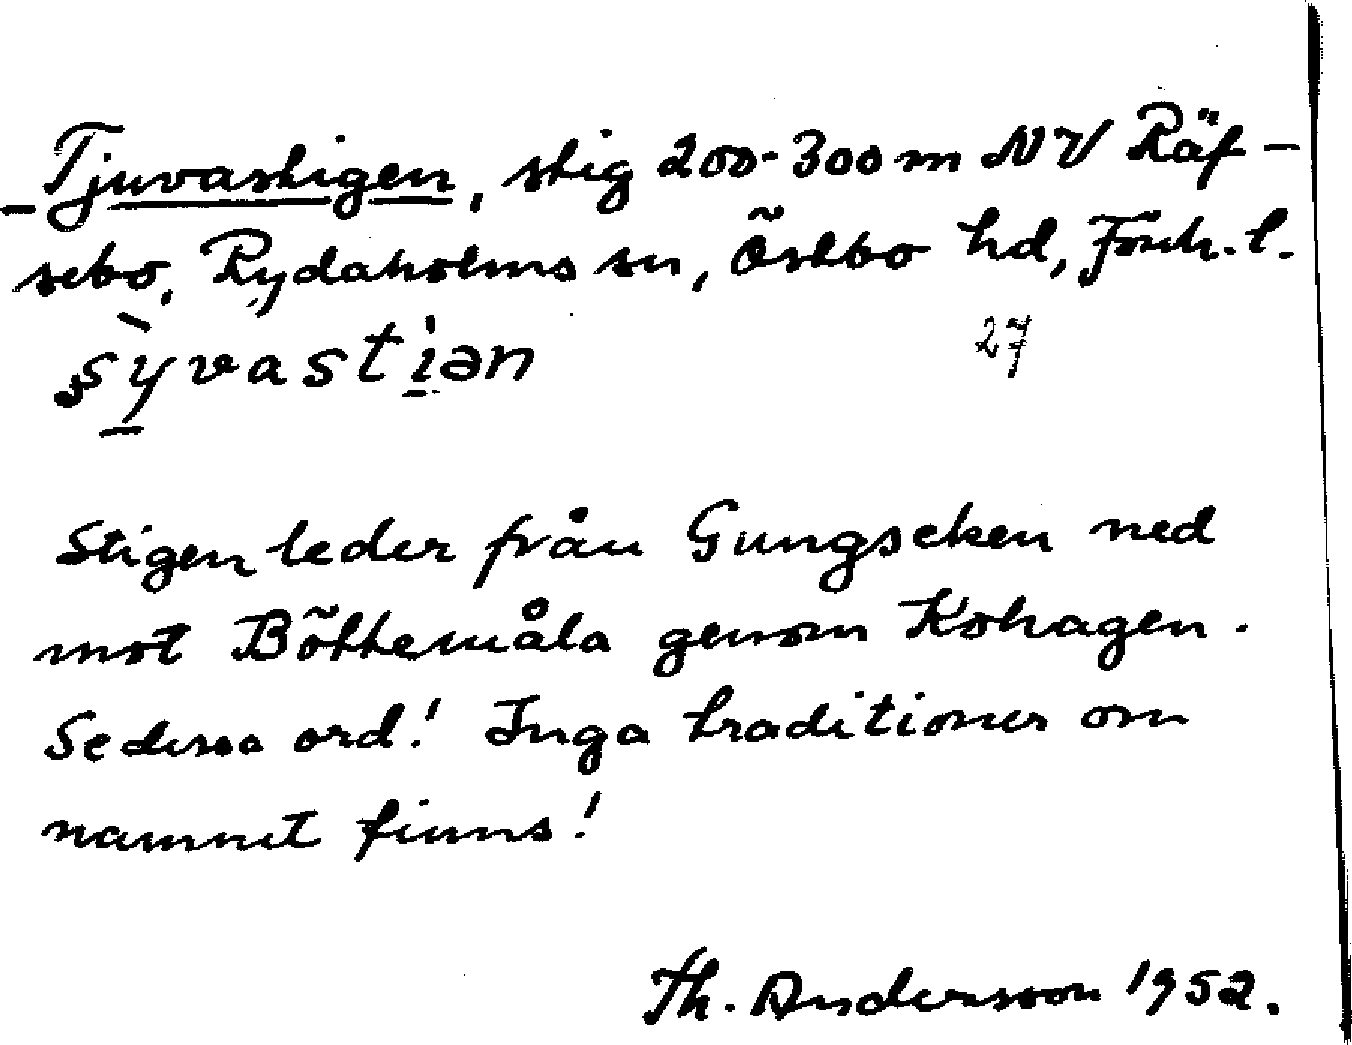 Tjuvastigen, stig 200-300 m NV Räf-
sebo, Rydaholms sn, Östbo hd, Jönk. l.
s̡ỳvastiən 27
Stigen leder från Gungseken ned
mot Böttemåla genom Kohagen.
Sedessa ord! Inga traditioner om
namnet finns!
Th. Andersson 1952.